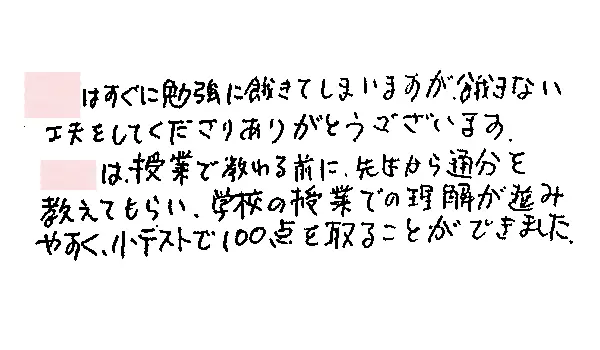 はすぐに勉強に飽きてしまいますが、飽きない
工夫をしてくださりありがとうございます。
は、授業で教わる前に、先生から通分を
教えてもらい、学校の授業での理解が進み
やすく、小テストで100点を取ることができました。